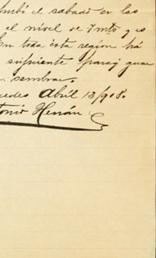 el sabado en las
el nivel de 7 mts y es
En toda esta region há
suficiente para que
sembrar.
Abril 13/908.
Antonio Herrán